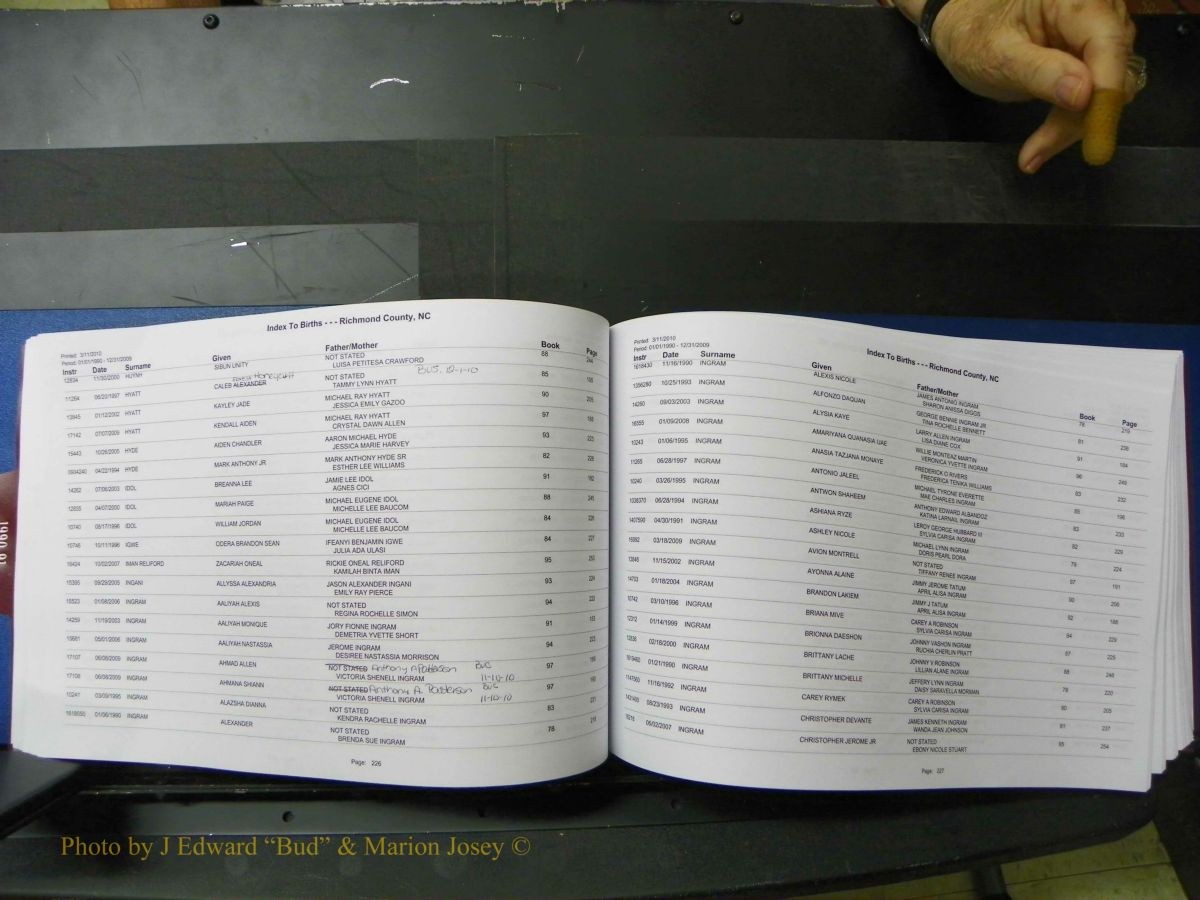 Index To Births - - - Richmond County, NC
Printed: 3/11/2010
Period: 01/01/1990 - 12/31/2009
Instr Date Surname Given Father/Mother Book Page
12834 11/30/2000 HUYNH SIBUN UNITY NOT STATED 88 244
LUISA PETITESA CRAWFORD
11264 06/20/1997 HYATT CALEB ALEXANDER NOT STATED BUS. 12-1-10 85
TAMMY LYNN HYATT
13945 01/12/2002 HYATT KAYLEY JADE MICHAEL RAY HYATT 90 205
JESSICA EMILY GAZOO
17142 07/07/2009 HYATT KENDALL AIDEN MICHAEL RAY HYATT 97
CRYSTAL DAWN ALLEN
15443 10/26/2005 HYDE AIDEN CHANDLER AARON MICHAEL HYDE 93 223
JESSICA MARIE HARVEY
04/22/1994 HYDE MARK ANTHONY JR MARK ANTHONY HYDE SR 82
ESTHER LEE WILLIAMS
14262 07/06/2003 IDOL BREANNA LEE JAMIE LEE IDOL 91 182
AGNES CICI
12655 04/07/2000 IDOL MARIAH PAIGE MICHAEL EUGENE IDOL 88 245
MICHELLE LEE BAUCOM
10740 08/17/1996 IDOL WILLIAM JORDAN MICHAEL EUGENE IDOL 84
MICHELLE LEE BAUCOM
10746 10/11/1996 IGWE ODERA BRANDON SEAN IFEANYI BENJAMIN IGWE 84 227
JULIA ADA ULASI
16424 10/02/2007 IMAN RELIFORD ZACARIAH ONEAL RICKIE ONEAL RELIFORD 95 253
KAMILAH BINTA IMAN
15395 09/29/2005 INGANI ALLYSSA ALEXANDRIA JASON ALEXANDER INGANI 93 224
EMILY RAY PIERCE
15523 01/08/2006 INGRAM AALIYAH ALEXIS NOT STATED 94 223
REGINA ROCHELLE SIMON
14259 11/19/2003 INGRAM AALIYAH MONIQUE JORY FIONNE INGRAM 91 183
DEMETRIA YVETTE SHORT
15681 05/01/2006 INGRAM AALIYAH NASTASSIA JEROME INGRAM 94 223
DESIREE NASTASSIA MORRISON
17107 06/08/2009 INGRAM AHMAD ALLEN NOT STATED Anthony A Patterson BUS 97
VICTORIA SHENELL INGRAM 11-10-10
17108 06/08/2009 INGRAM AHMANA SHIANN NOT STATED Anthony A. Patterson BUS 97
VICTORIA SHENELL INGRAM 11-10-10
10241 03/09/1995 INGRAM ALAZSHA DIANNA NOT STATED 83 221
KENDRA RACHELLE INGRAM
01/06/1990 INGRAM ALEXANDER NOT STATED 78
BRENDA SUE INGRAM
Page: 226
Index To Births - - - Richmond County, NC
Printed: 3/11/2010
Period: 01/01/1990 - 12/31/2009
Instr Date Surname Given Father/Mother Book Page
1618430 11/16/1990 INGRAM ALEXIS NICOLE JAMES ANTONIO INGRAM 78 219
SHARON ANISSA DIGGS
1356280 10/25/1993 INGRAM ALFONZO DAQUAN GEORGE BENNIE INGRAM JR 81 238
TINA ROCHELLE BENNETT
14260 09/03/2003 INGRAM ALYSIA KAYE LARRY ALLEN INGRAM 91 184
LISA DIANE COX
16555 01/09/2008 INGRAM AMARIYANA QUANASIA UAE WILLIE MONTEAZ MARTIN 96 249
VERONICA YVETTE INGRAM
10243 01/06/1995 INGRAM ANASIA TAZJANA MONAYE FREDERICK O RIVERS 83 232
FREDERICA TENIKA WILLIAMS
11265 06/28/1997 INGRAM ANTONIO JALEEL MICHAEL TYRONE EVERETTE 85 196
MAE CHARLES INGRAM
10240 03/26/1995 INGRAM ANTWON SHAHEEM ANTHONY EDWARD ALBANDOZ 83 233
KATINA LARNAIL INGRAM
1036370 06/28/1994 INGRAM ASHIANA RYZE LEROY GEORGE HUBBARD III 82 229
SYLVIA CARISA INGRAM
1407590 04/30/1991 INGRAM ASHLEY NICOLE MICHAEL LYNN INGRAM 79 224
DORIS PEARL DORA
03/18/2009 INGRAM AVION MONTRELL NOT STATED 97 191
TIFFANY RENEE INGRAM
13846 11/15/2002 INGRAM AYONNA ALAINE JIMMY JEROME TATUM 90 206
APRIL ALISA INGRAM
14703 01/18/2004 INGRAM BRANDON LAKIEM JIMMY J TATUM 92 188
APRIL ALISA INGRAM
10742 03/10/1996 INGRAM BRIANA MIVE CAREY A ROBINSON 84 229
SYLVIA CARISA INGRAM
12312 01/14/1999 INGRAM BRIONNA DAESHON JOHNNY VASHON INGRAM 87 225
RUCHIA CHERLIN PRATT
12836 02/18/2000 INGRAM BRITTANY LACHE JOHNNY V ROBINSON 88 246
LILLIAN ALONE INGRAM
01/21/1990 INGRAM BRITTANY MICHELLE JEFFERY LYNN INGRAM 78 220
DAISY SARAVELLA MORMAN
1147560 11/16/1992 INGRAM CAREY RYMEK CAREY A ROBINSON 80 205
SYLVIA CARISA INGRAM
08/23/1993 INGRAM CHRISTOPHER DEVANTE JAMES KENNETH INGRAM 81 237
WANDA JEAN JOHNSON
16218 06/02/2007 INGRAM CHRISTOPHER JEROME JR NOT STATED 95 254
EBONY NICOLE STUART
Page: 227
Photo by J Edward “Bud” & Marion Josey ©